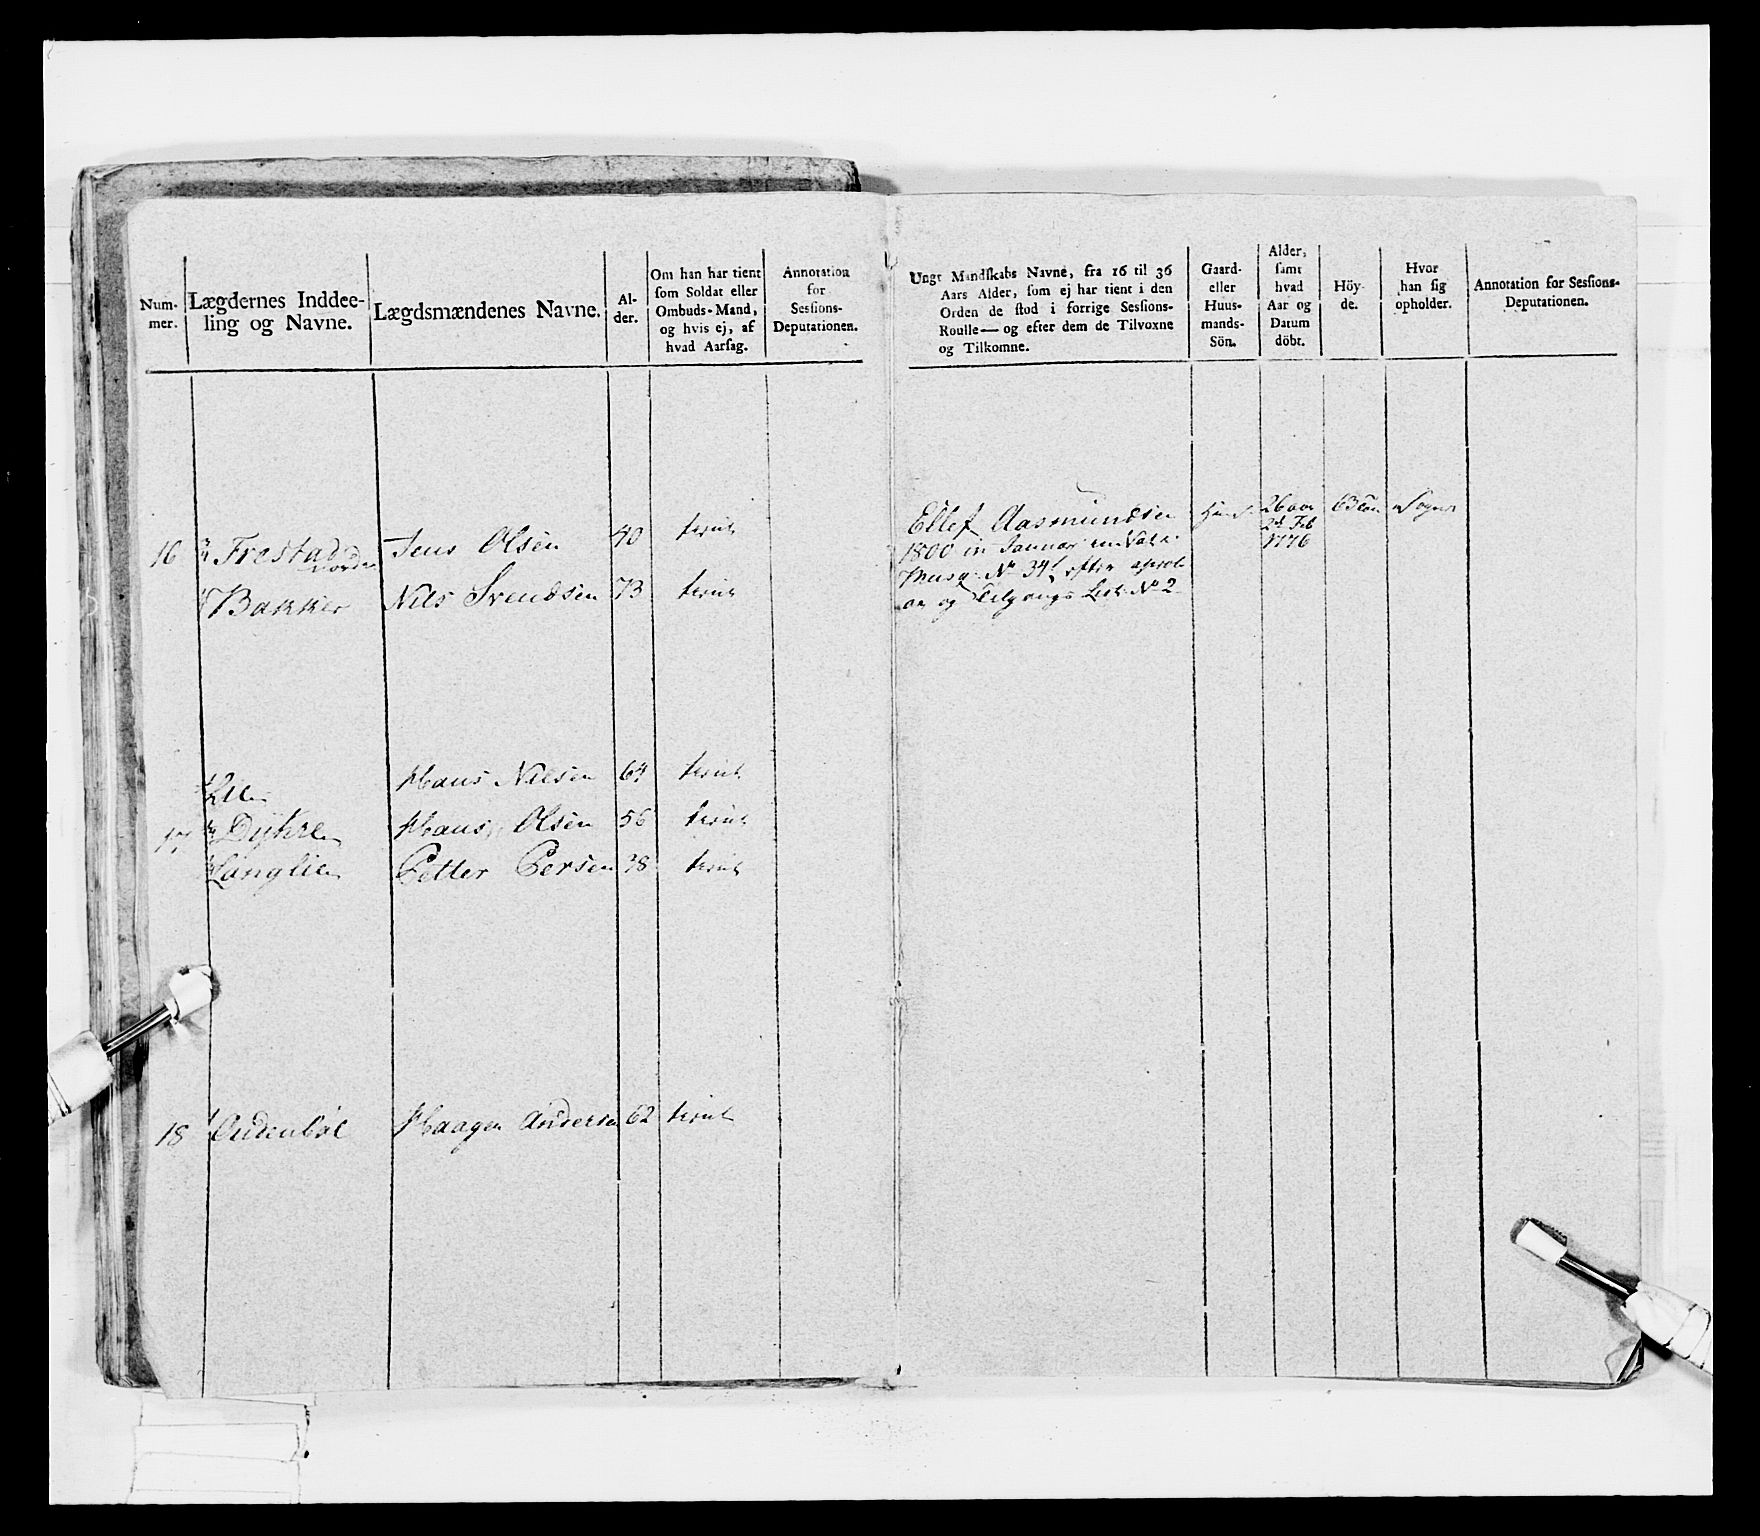 Num-
mer.
Lægdernes Inddee-
ling og Navne.
Lægdsmændenes Navne.
Al-
der.
Om han har tient
som Soldat eller
Ombuds-Mand,
og hvis ej, af
hvad Aarsag.
Annotation
for
Sessions-
Deputationen.
16 Frestad Jens Olsen 40 tient
Bakker Nils Svendsen 73 tient
Lille Hans Nilsen 64 tient
17 Dyhre Hans Olsen 56 tient
Langlie Petter Persen 38 tient
18 Audenbøl Haagen Andersen 62 tient
Ungt Mandskabs Navne, fra 16 til 36
Aars Alder, som ej har tient i den
Orden de stod i forrige Sessions-
Roulle — og efter dem de Tilvoxne
og Tilkomne.
Gaard-
eller
Huus-
mands-
Sön.
Alder,
samt
hvad
Aar og
Datum
döbt.
Höy-
de.
Hvor
han sig
opholder.
Annotation for Sessions-
Deputationen.
Ellef Aasmundsen 26 aar Sogne
1800 in Januar
2d Feb
1776
No 34 efter
og Tilgangs List No 2